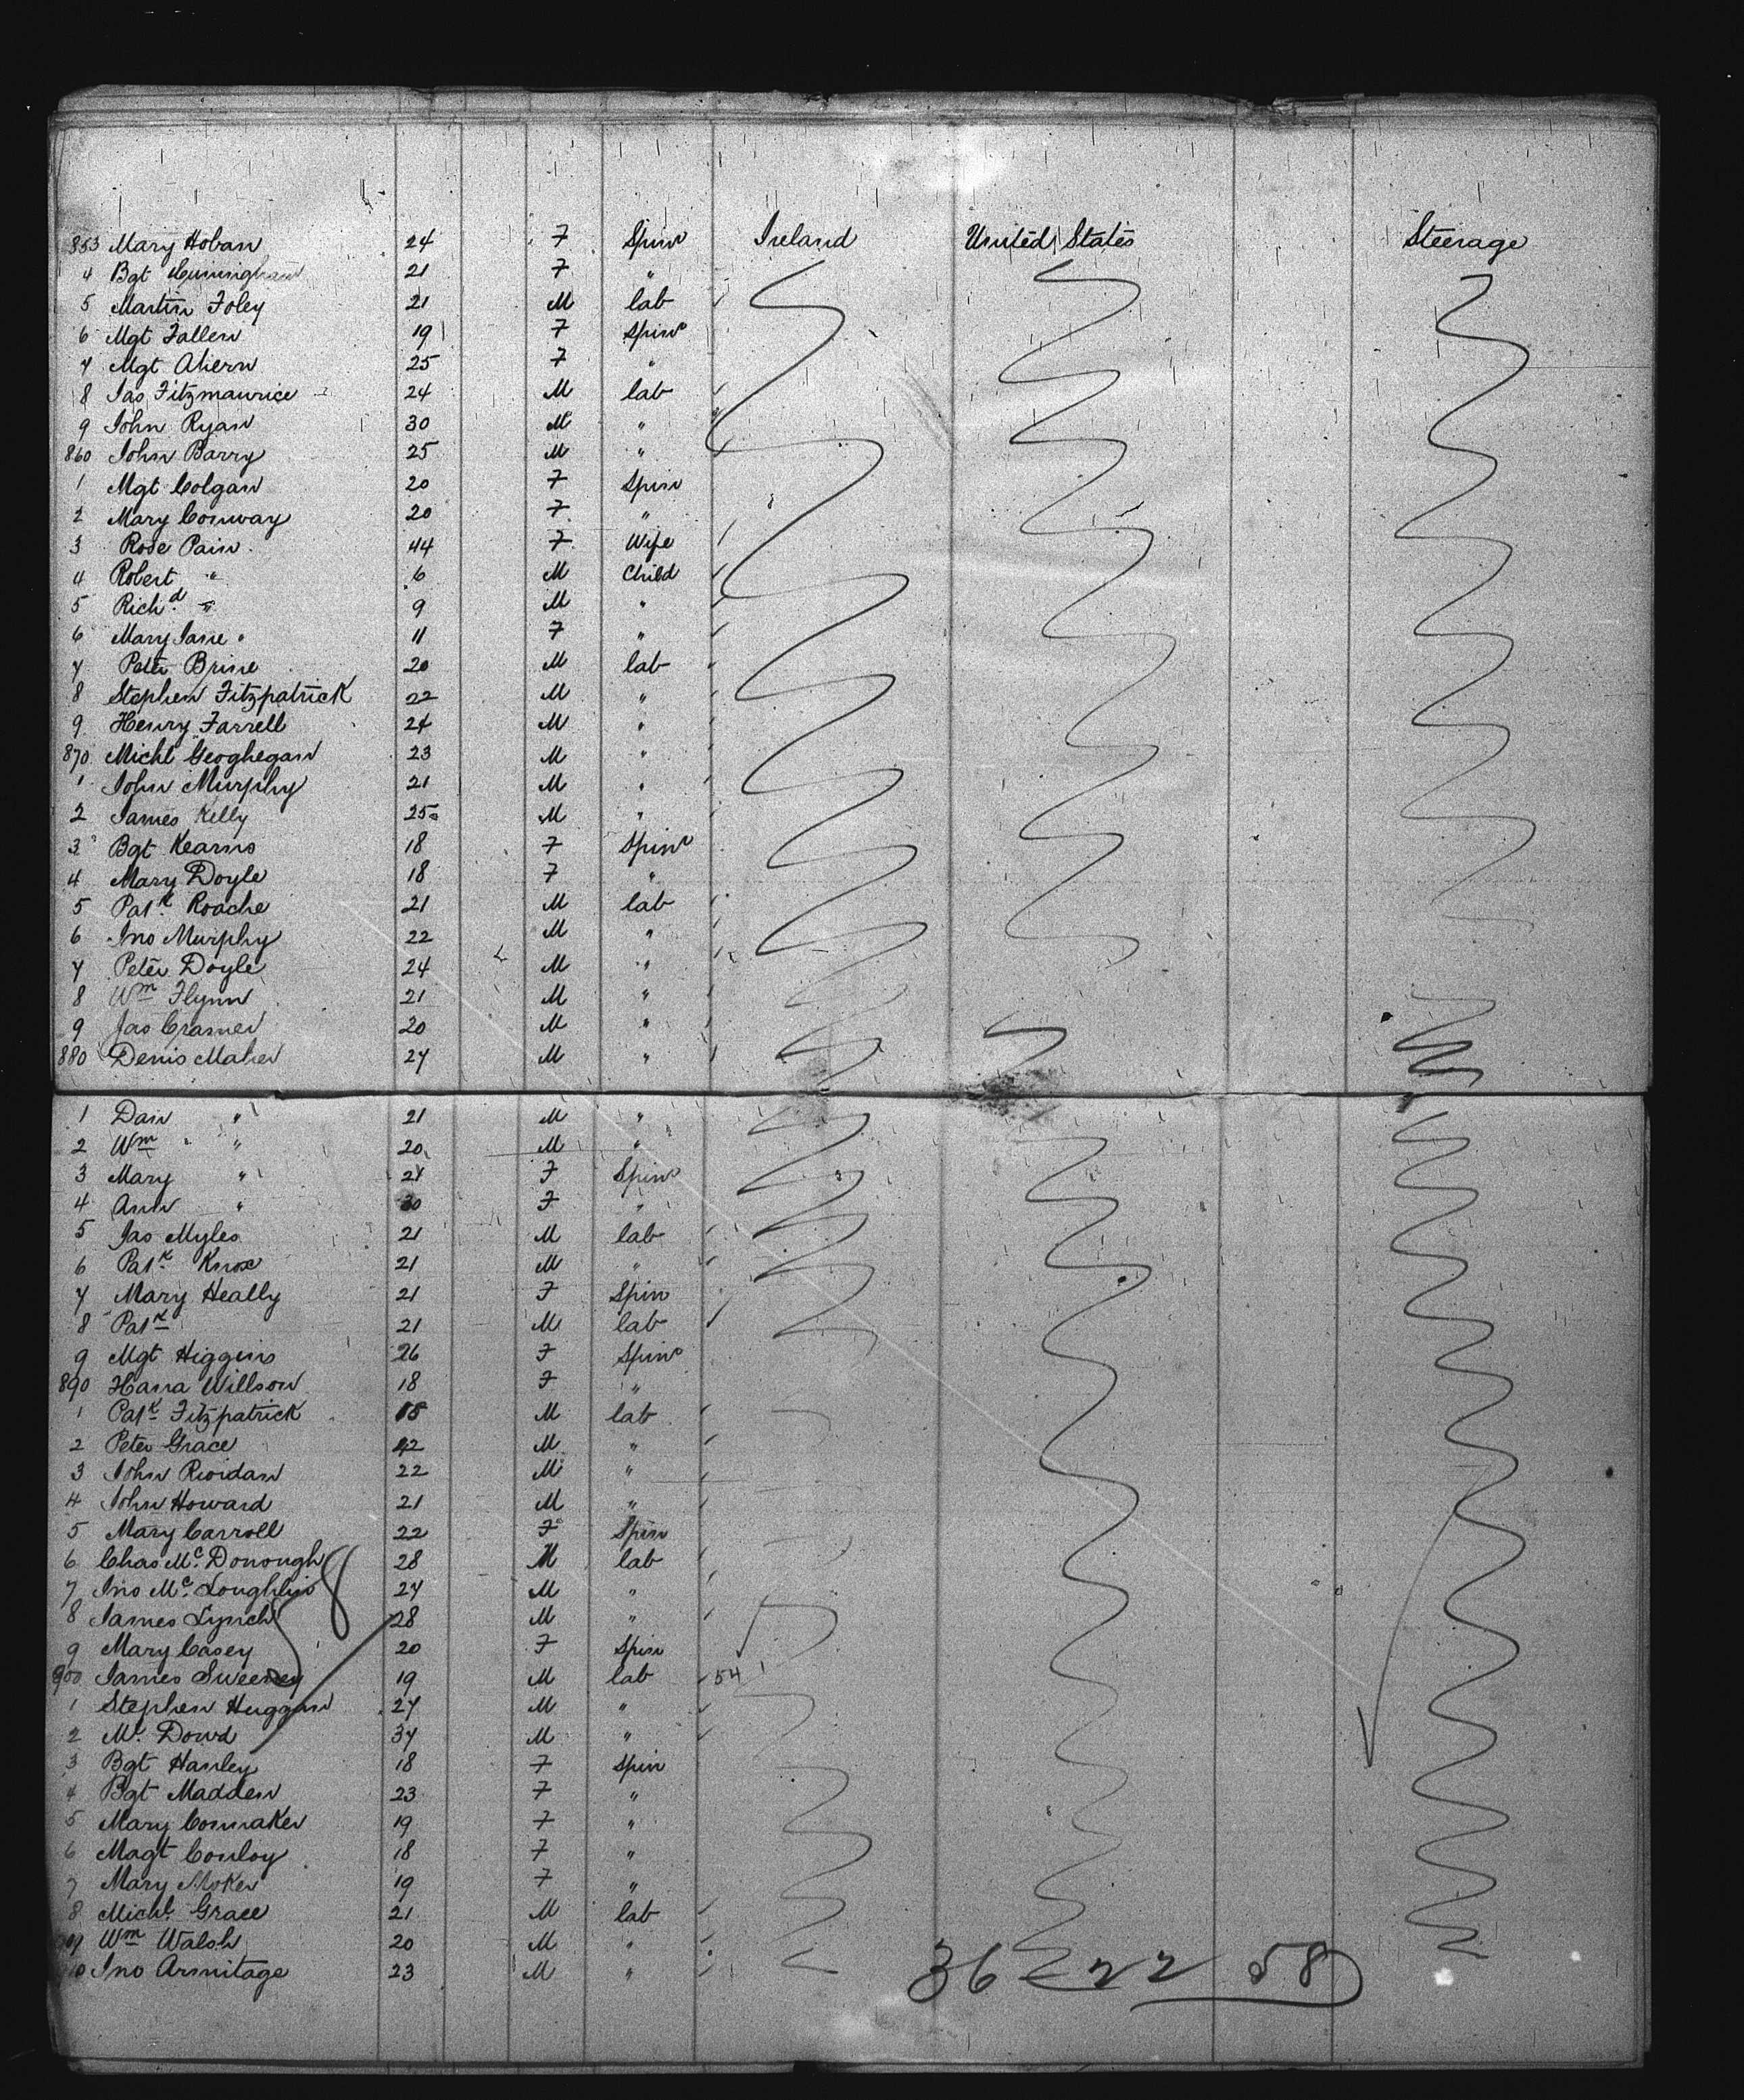 853 Mary Hoban 24 F Spinr Ireland United States Steerage
4 Bgt Cunningham 21 F "
5 Martin Foley 21 M lab
6 Mgt Fallen 19 F Spinr
7 Mgt Ahern 25 F "
8 Jas Fitzmaurice 24 M lab
9 John Ryan 30 M "
860 John Barry 25 M "
1 Mgt Colgan 20 F Spin
2 Mary Conway 20 F "
3 Rose Pain 44 F Wife
4 Robert " 6 M Child
5 Richd " 9 M "
6 Mary Jane " 11 F "
7 Peter Brine 20 M lab
8 Stephen Fitzpatrick 22 M "
9 Henry Farrell 24 M "
870 Michl Geoghegan 23 M "
1 John Murphy 21 M "
2 James Kelly 25 M "
3 Bgt Kearns 18 F Spinr
4 Mary Doyle 18 F "
5 Patk Roache 21 M lab
6 Jno Murphy 22 M "
7 Peter Doyle 24 M "
8 Wm Flynn 21 M "
9 Jas Cramer 20 M "
880 Denis Maher 27 M "
1 Dan " 21 M "
2 Wm " " 20 M "
3 Mary " 24 F Spinr
4 Ann " 30 F "
5 Jas Myles 21 M lab
6 Patk Knox 21 M "
7 Mary Heally 21 F Spin
8 Patk 21 M lab
9 Mgt Higgins 26 F Spinr
890 Hana Willson 18 F "
1 Patk Fitzpatrick 18 M lab
2 Peter Grace 42 M "
3 John Rioidan 22 M "
4 John Howard 21 M "
5 Mary Carroll 22 F Spin
6 Chas Mc Donough 28 M lab
7 Jno Mc Loughlin 27 M "
8 James Lynch 28 M "
9 Mary Casey 20 F Spin
900 James Sweeney 19 M lab 54
1 Stephen Huggan 27 M "
2 M. Dowd 37 M "
3 Bgt Hanley 18 F Spin
4 Bgt Madden 23 F "
5 Mary Connaker 19 F "
6 Magt Conloy 18 F "
7 Mary 19 F "
8 Michl Grace 21 M lab
9 Wm Walsh 20 M "
10 Jno Armitage 23 M "
36 22 58